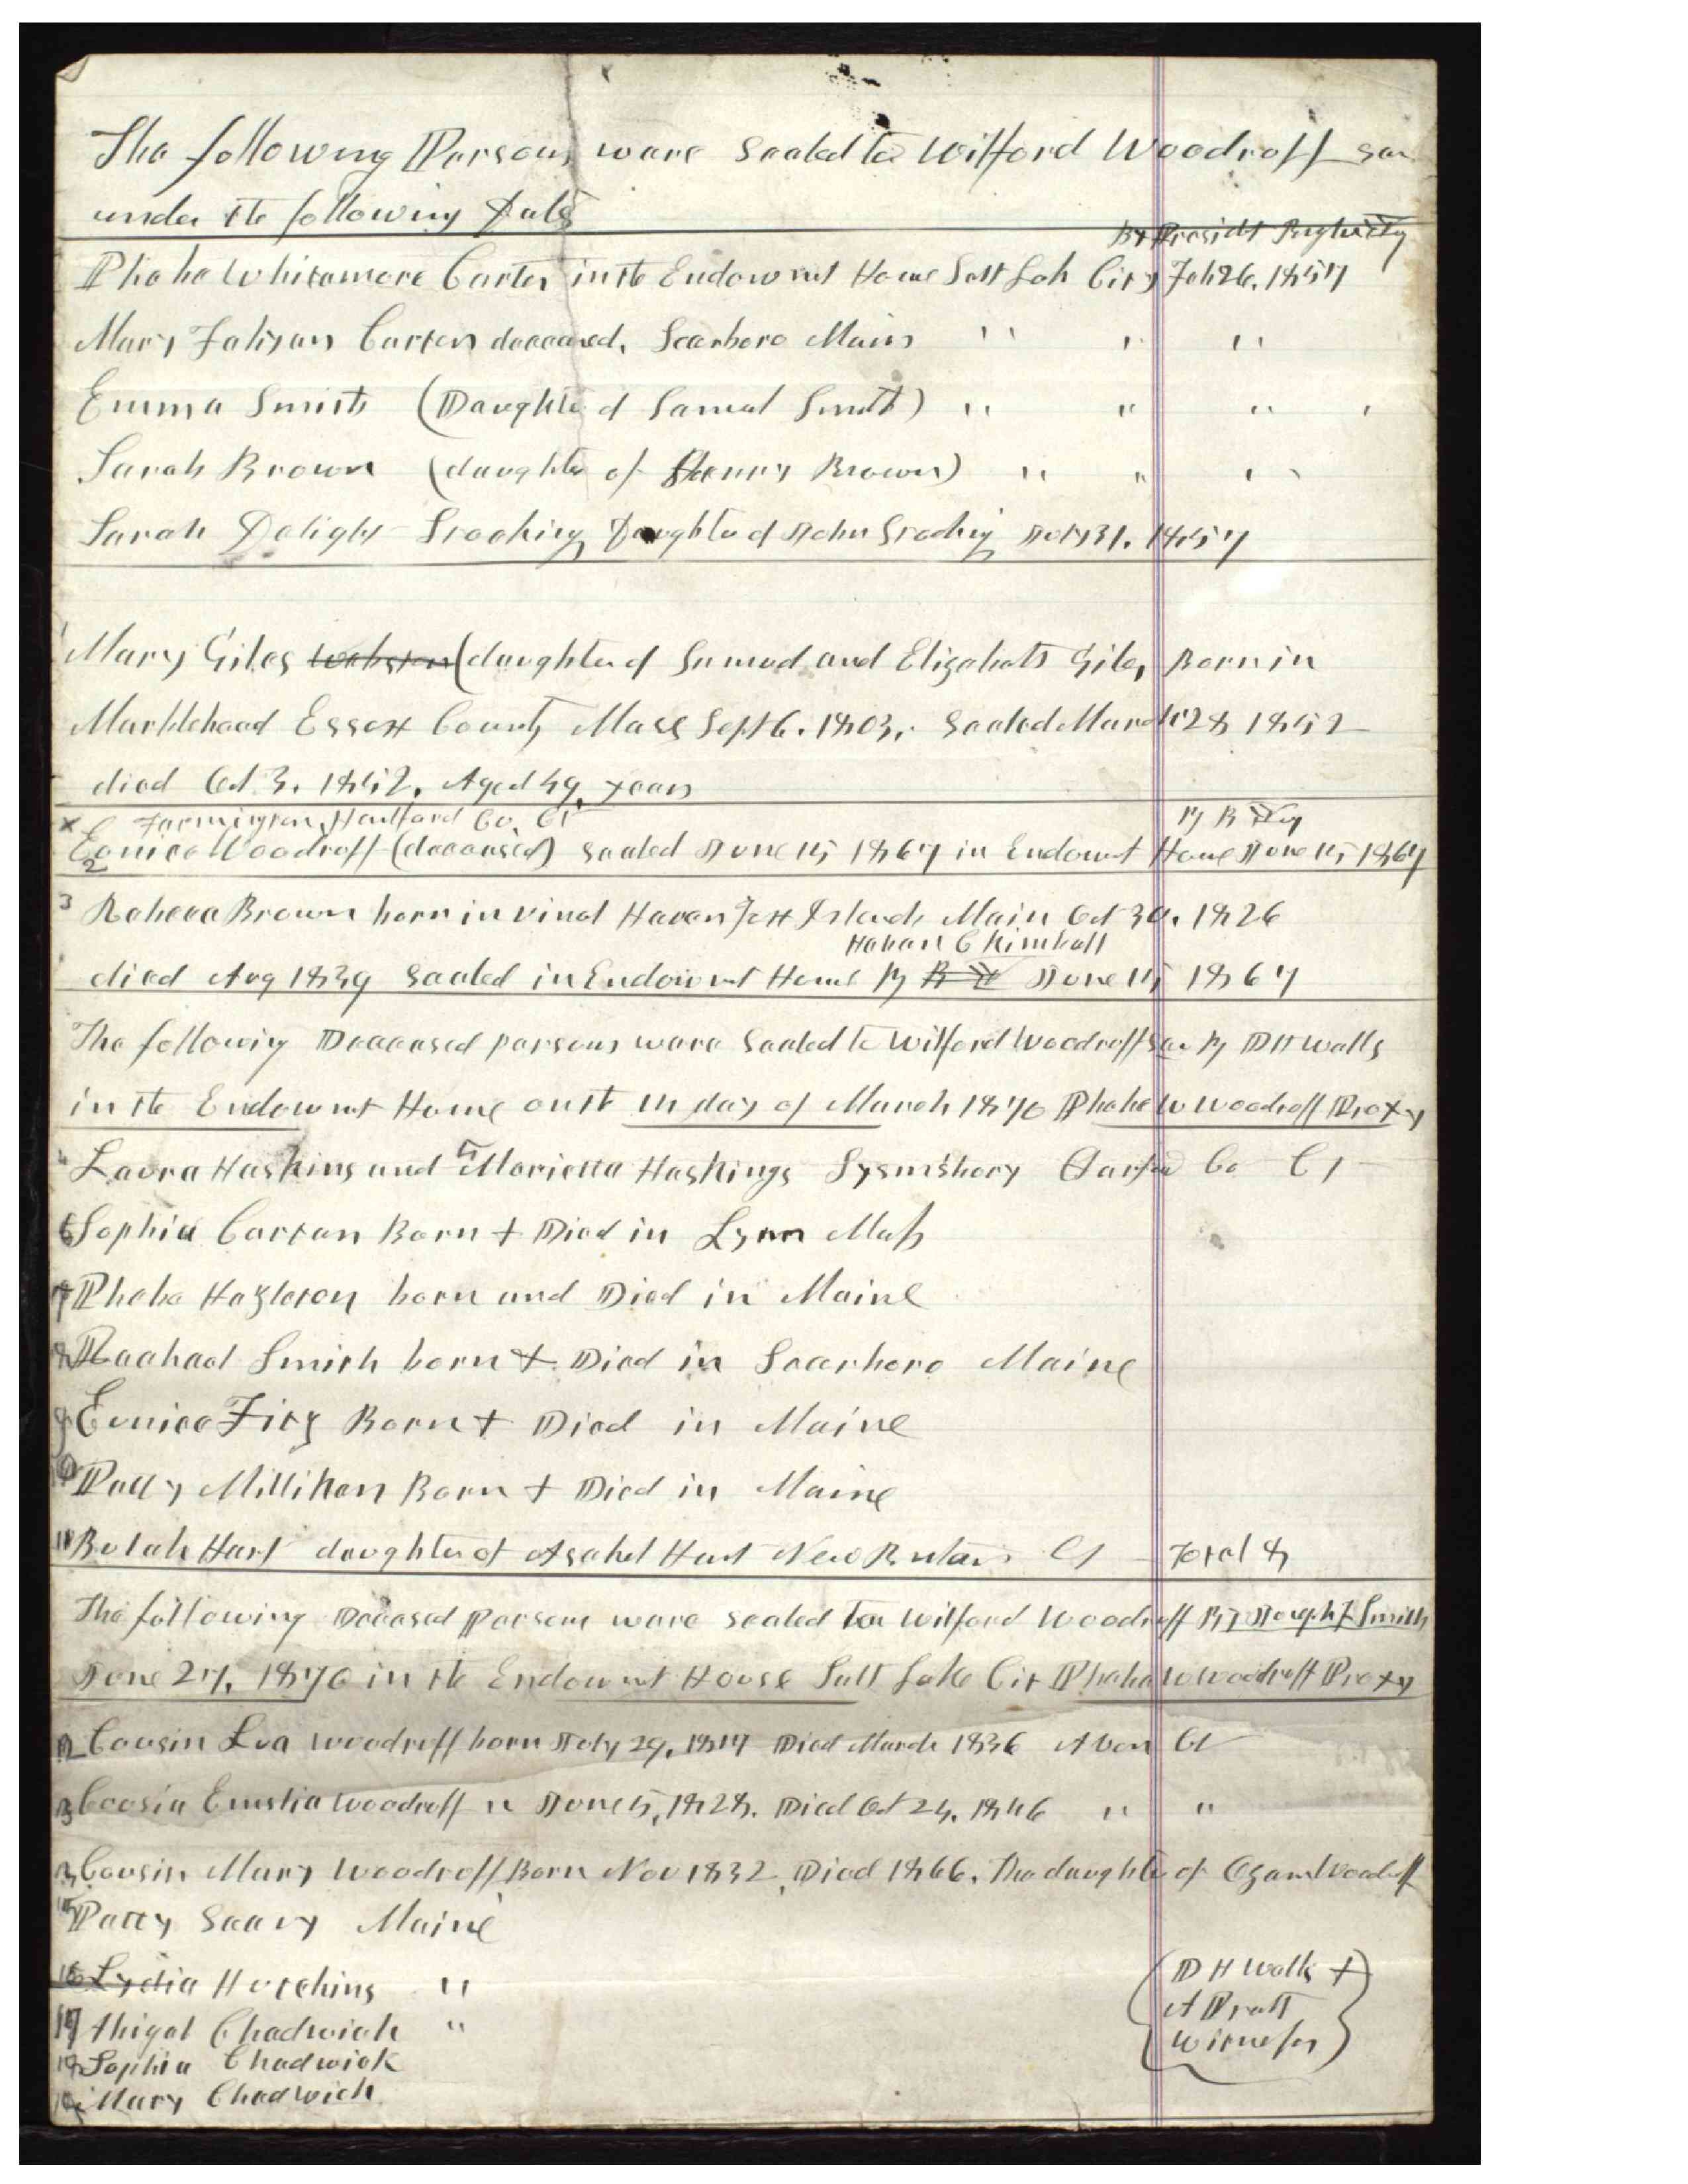 The following Persons ware Sealed to Wilford Woodruff Sen
under the following Dates
By Presidt Brigham Young
Phebe Whitemore Carter in the Endowmt House Salt Lak City Feb 26. 1857
Mary Fabyan Carter deceased, Scarboro Main " " "
Emma Smith (Daughter of Samuel Smith) " " "
Sarah Brown (daughter of Henry Brown) " " "
Sarah Delight Stocking Daughter of John Stocking July 31. 1857
1 Mary Giles Webster (daughter of Samuel and Elizabeth Giles Born in
Marblehead Essex County Mass Sept 6. 1803, Sealed March 28 1852
died Oct 3. 1852. Aged 49 years
X Farmington, Hartford Co. Ct By B Y
2 Eunice Woodruff (deceased) Sealed June 15 1867 in Endowmt House June 15 1867
3 Rebeca Brown born in Vinal Haven Fox Islands Main Oct 30. 1826
Heber C Kimball
died Aug 1839 Sealed in Endowmt House By B Y June 15 1867
The followig Deceased persons ware Sealed to Wilford Woodruff Sen By D H Wells
in the Endowmt House on the 11 day of March 1870 Phebe W Woodruff Proxy
4 Laura Haskins and 5 Marietta Haskings Sysmsbery Co Ct
6 Sophia Carter Born + Died in Lynn Mass
7 Phebe Hazleton born and Died in Maine
8 Rachael Smith born + Died in Scarboro Maine
9 Eunice Fitz Born + Died in Maine
10 Polly Milliken Born + Died in Maine
11 Bulah Hart daughter of Asahel Hart New Britain Ct Total 8
The following Deceased Persons ware sealed to Wilford Woodruff By Joseph F Smith
June 27, 1870 in the Endowmt House Salt Lake Cit Phebe W Woodruff Proxy
12 Cousin Eva Woodruff born July 29, 1817 Died March 1836 Avon Ct
13 Coosin Emelia Woodruff " June 5, 1828. Died Oct 24. 1846 " "
Cousin Mary Woodruff Born Nov 1832, Died 1866. The daughter of Ozem Woodruff
15 Patty Seavy Maine
16 Lydia Hutchins "
17 Abigal Chadwick "
18 Sophia Chadwick
19 Mary Chadwick
D H Wells +
A Pratt
Witness